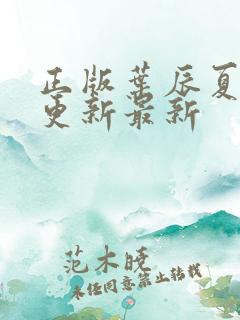 正版葉辰夏
更新最新
范木曉
未经同意禁止转载